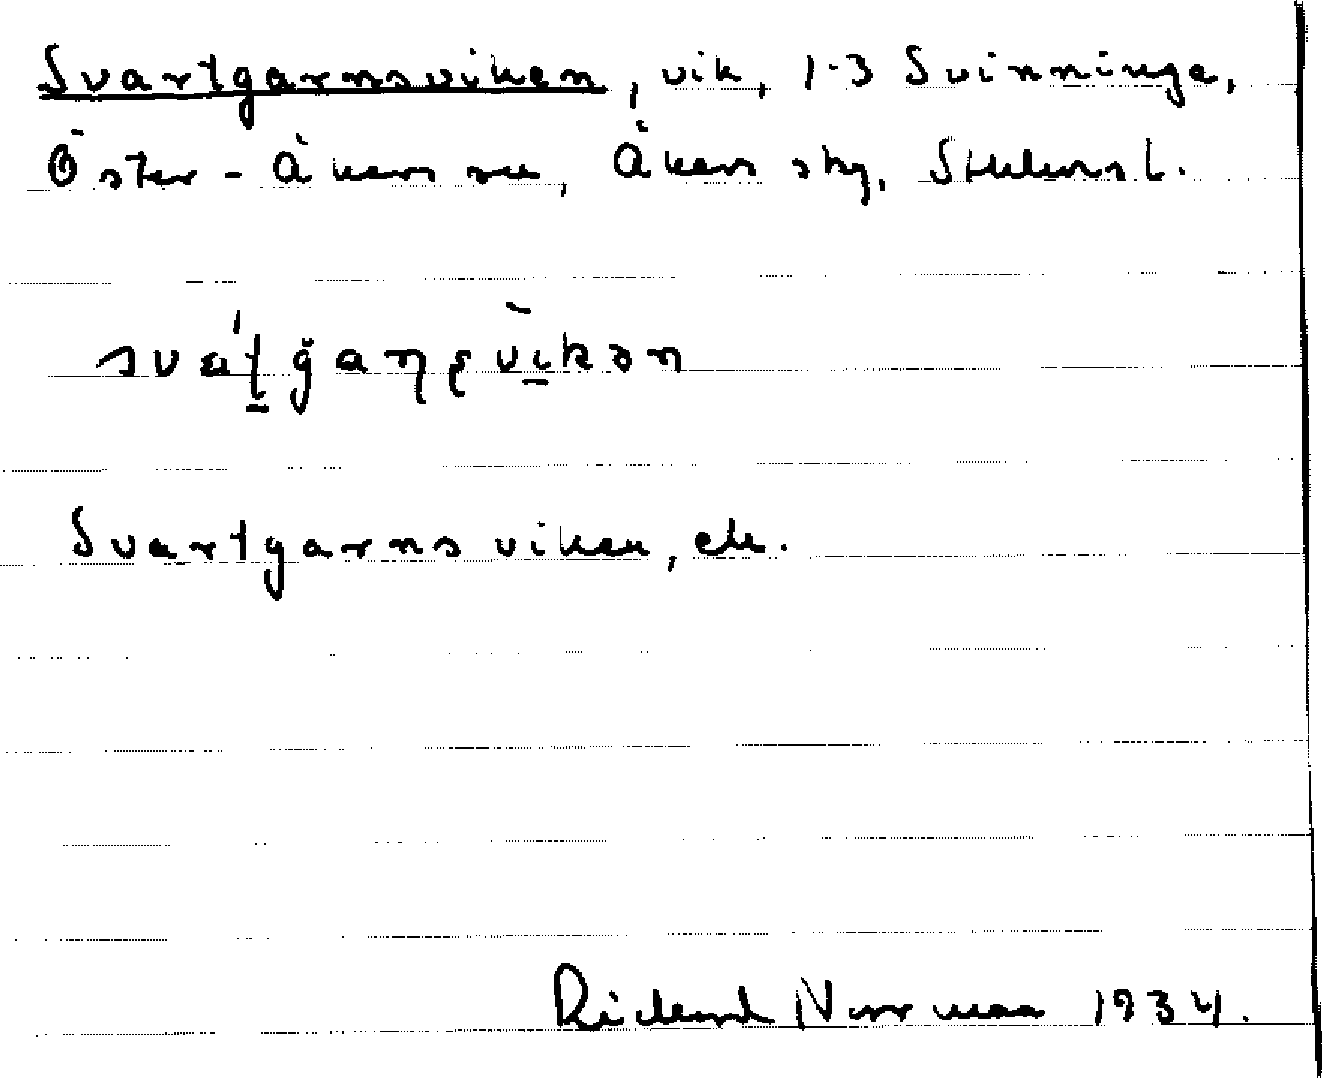 Svartgarnsviken, vik, 1-3 Svinninge,
Öster-Åkers sn, Åkers skg, Sthlms l.
Svartgarnsviken, ek.
Rickard Norrman 1934.